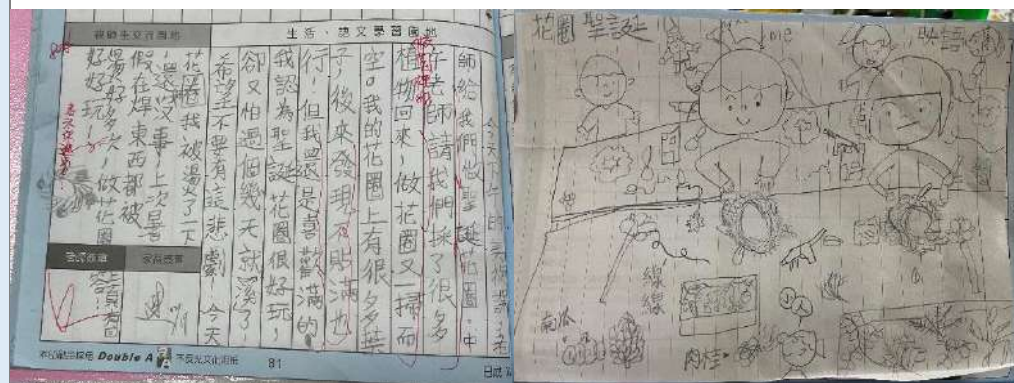 親師生交流園地
生活、語文學習園地
今天下午的美術課老
師給我們做聖誕花圈，中
午老師請我們採了很多
植物回來，做花圈又一掃而
空。我的花圈上有很多
子，後來發現不貼滿也
行，但我還是喜歡滿的
我認為聖誕花圈很好玩，
卻又怕過個幾天就
希望不要有這悲劇！今天
花圈我被燙了一下
還沒事！上次暑
假在焊東西都被
燙好多次，做花圈
好好玩！
Double A
81
花圈 聖誕
me
線
線
南瓜
肉桂